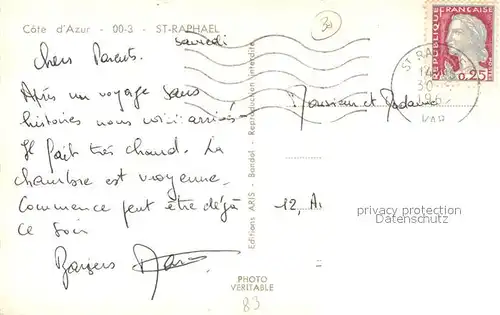 Côte d'Azur - 00-3 - ST-RAPHAEL
Samedi
Chers Parents.
Après un voyage sans
histoires nous voici arrivés
Il fait très chaud. La
chambre est moyenne.
Commence peut être déjà
ce soir
Baisers
PHOTO
VERITABLE
83
Editions ARIS - Bandol - Reproduction Interdite
30
REPUBLIQUE FRANCAISE
0,25
ST RAPHAEL
14
30
19
VAR
Monsieur et Madame
12, A
privacy protection
Datenschutz